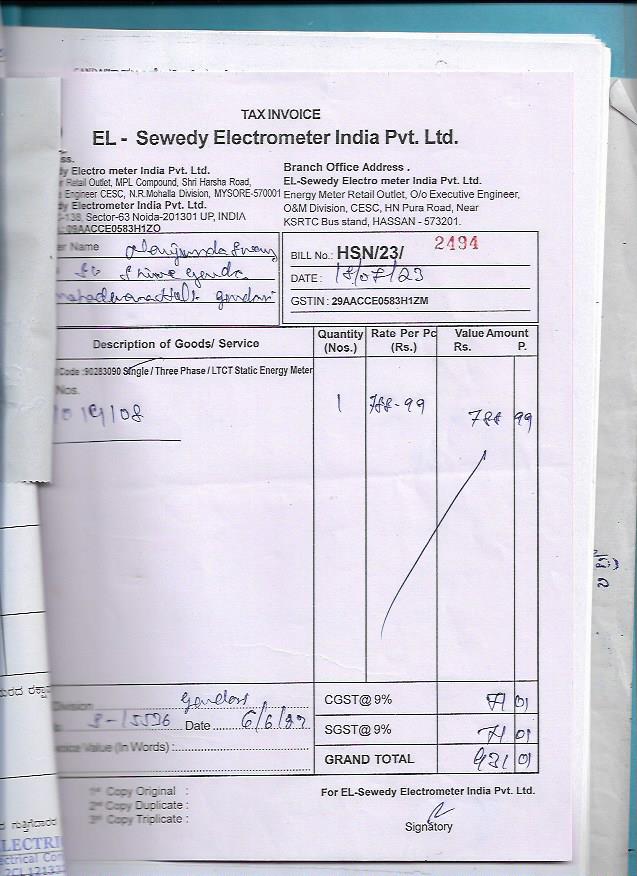 TAX INVOICE
EL - Sewedy Electrometer India Pvt. Ltd.
ss.
dy Electro meter India Pvt. Ltd.
r Retail Outlet, MPL Compound, Shri Harsha Road,
Engineer CESC, N.R.Mohalla Division, MYSORE-570001
dy Electrometer India Pvt. Ltd.
-138, Sector-63 Noida-201301 UP, INDIA
: 29AACCE0583H1ZO
Branch Office Address .
EL-Sewedy Electro meter India Pvt. Ltd.
Energy Meter Retail Outlet, O/o Executive Engineer,
O&M Division, CESC, HN Pura Road, Near
KSRTC Bus stand, HASSAN - 573201.
er Name
BILL No.: HSN/23/ 2494
DATE : 18/07/23
GSTIN : 29AACCE0583H1ZM
Description of Goods/ Service
Quantity (Nos.)
Rate Per Pc (Rs.)
Value Amount
Rs. P.
Code :90283090 Single / Three Phase / LTCT Static Energy Meter
Nos.
1 788-99 788 99
Division
Date
CGST@ 9% 71 01
SGST@ 9% 71 01
voice Value (In Words) :
GRAND TOTAL 931 01
1st Copy Original :
2nd Copy Duplicate :
3rd Copy Triplicate :
For EL-Sewedy Electrometer India Pvt. Ltd.
Signatory
LECTRI
ectrical Con